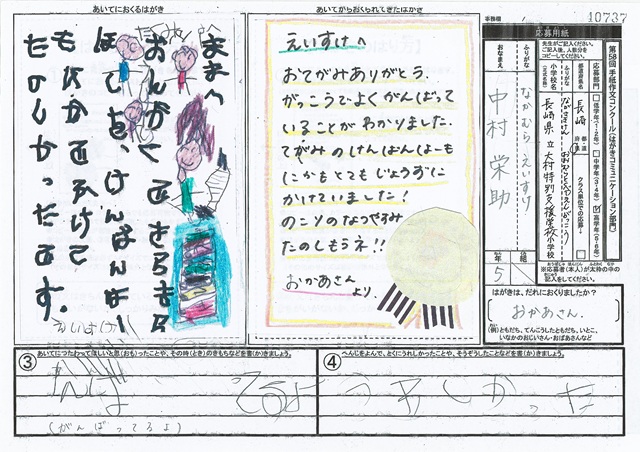 あいてにおくるはがき
ままへ
おんがくできらきら
ほしを、けんばんはー
もにかでふけて
たのしかったです。
えいすけ
あいてからおくられてきたはがき
えいすけへ
おてがみありがとう。
がっこうでよくがんばって
いることがわかりました。
てがみのけんばんはーも
にかもとてもじょうずに
かけていました!
のこりのなつやすみ
たのしもうネ!!
おかあさん
より。
事務欄
10737
応募用紙
第58回 手紙作文コンクール(はがきコミュニケーション部門)
応募部門
低学年(1・2年)
中学年(3・4年)
高学年(5・6年)
都道府県名
長崎
都・道
府・県
クラス単位での応募
ふりがな
小学校名
(正式名称)
長崎県立大村特別支援学校
小学校
先生がご記入ください。
ご記入後、人数分を
コピーしてください。
ふりがな
なかむら えいすけ
おなまえ
中村 栄助
年
組
5
※応募者(本人)が太枠の中の
記入をしてください。
はがきは、だれにおくりましたか?
おかあさん。
(例)ともだち、てんこうしたともだち、いとこ、
いなかのおじいさん・おばあさんなど
③
あいてにつたわってほしいと思(おも)ったことや、その時(とき)のきもちなどを書(か)きましょう。
(がんばってるよ)
④
へんじをよんで、とくにうれしかったことや、そうぞうしたことなどを書(か)きましょう。
うれしかった